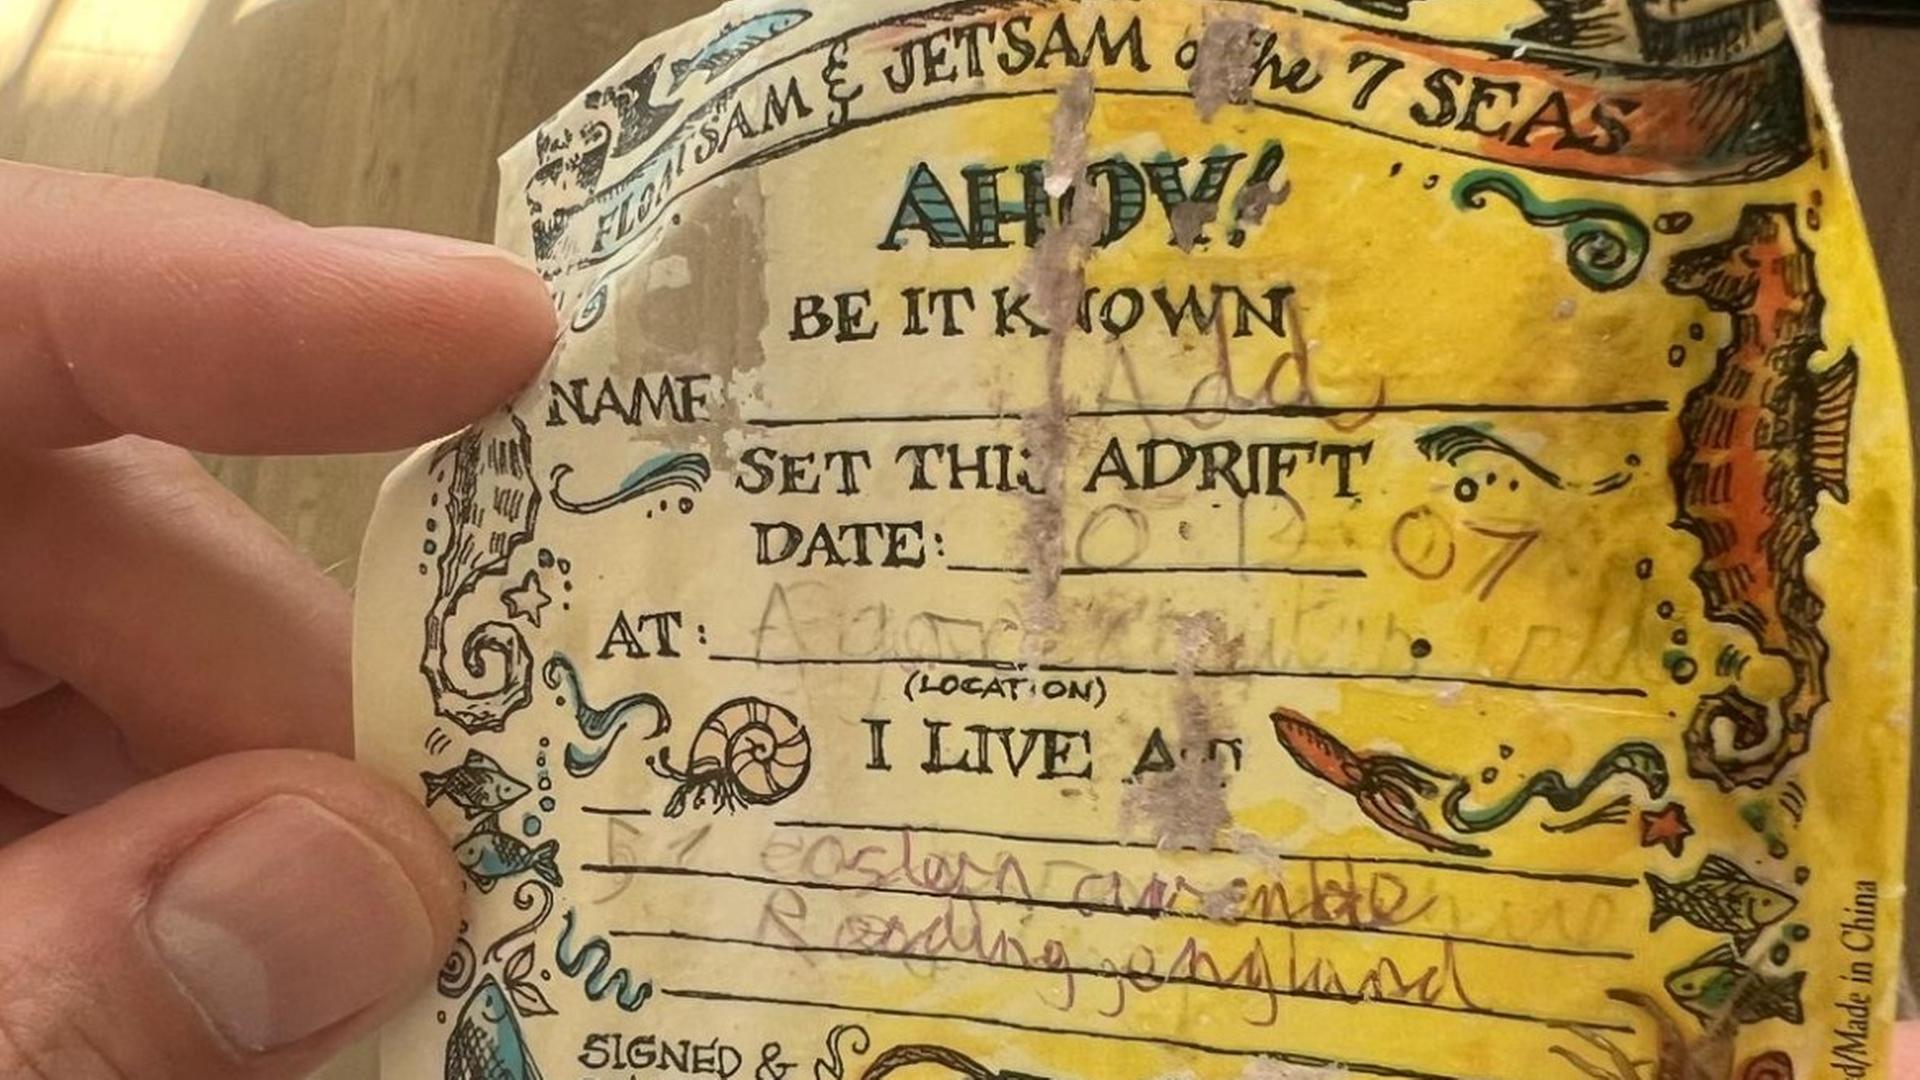 FLOATSAM & JETSAM of the 7 SEAS
AHOY!
BE IT KNOWN
NAME Add
SET THIS ADRIFT
DATE: 0 . 12 . 07
AT:
(LOCATION)
I LIVE AT
51 eastern avenue
Reading, england
SIGNED &
Made in China